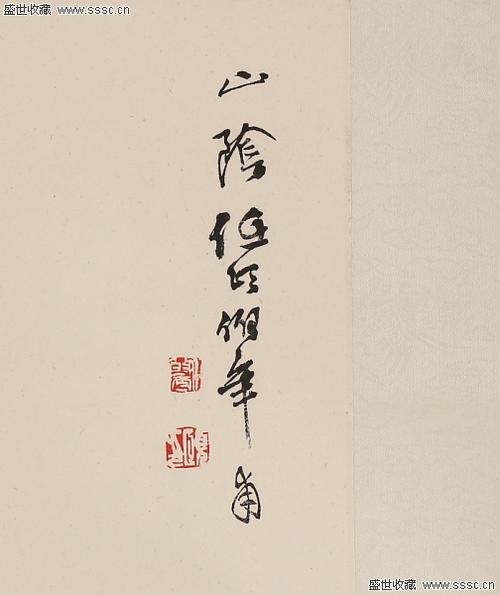 盛世收藏 www.sssc.cn
山陰任頤伯年甫
盛世收藏 www.sssc.cn